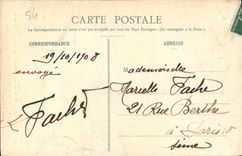 84
CARTE POSTALE
La Correspondance au recto n'est pas acceptée par tous les Pays Étrangers. (Se renseigner à la Poste.)
CORRESPONDANCE
ADRESSE
19/10/1908
envoyé
Fache
Mademoiselle
Marcelle Fache
21 Rue Berthe
à Paris 18
Seine